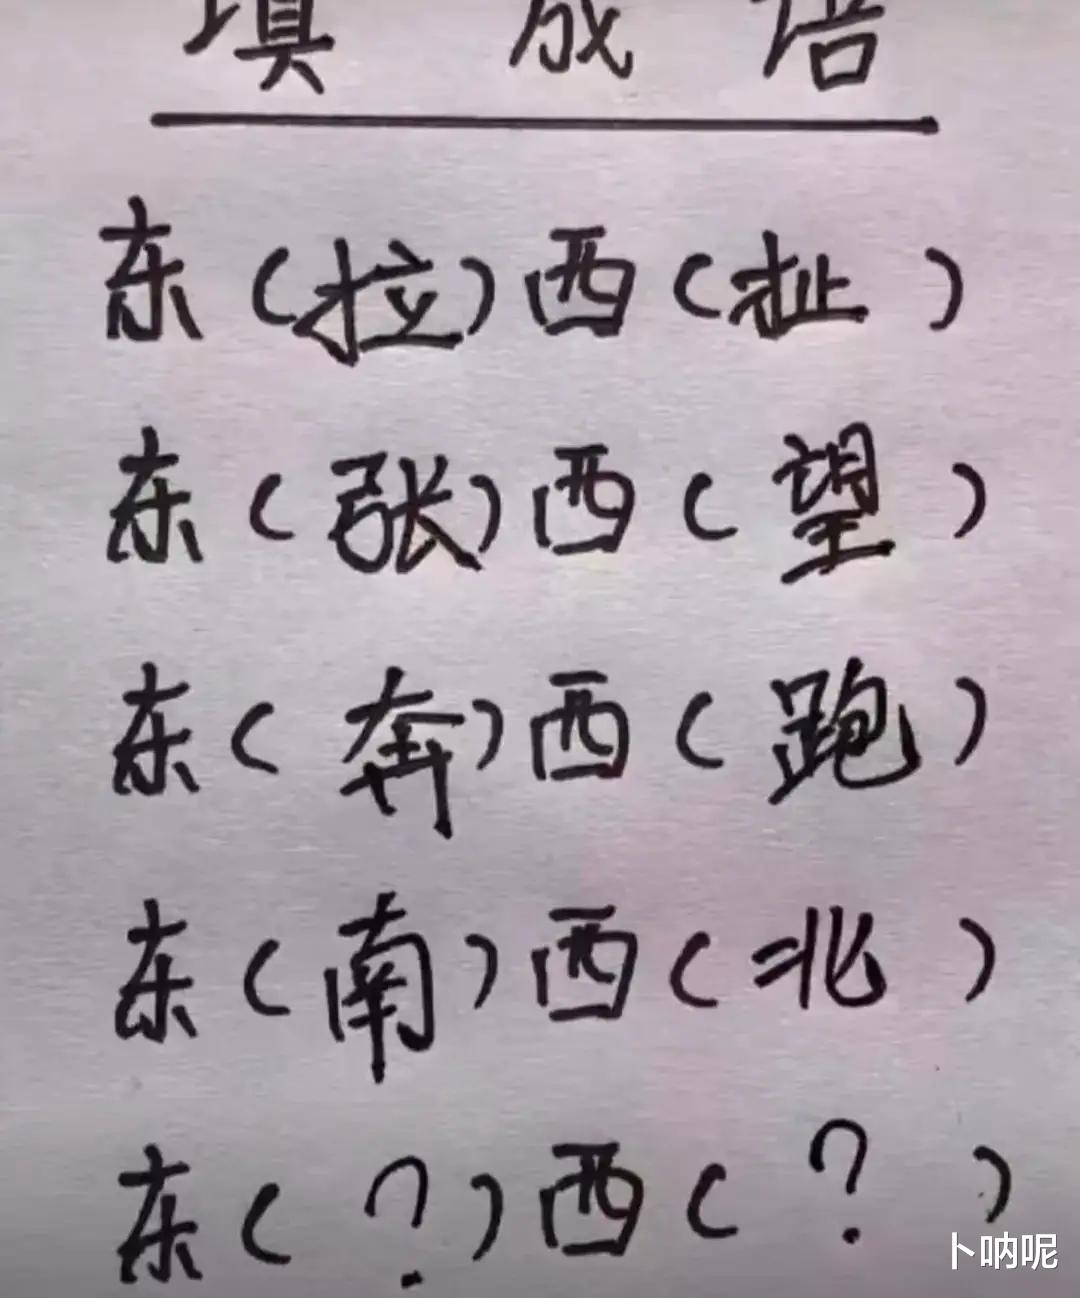 填成语
东（拉）西（扯）
东（张）西（望）
东（奔）西（跑）
东（南）西（北）
东（？）西（？）
卜呐呢